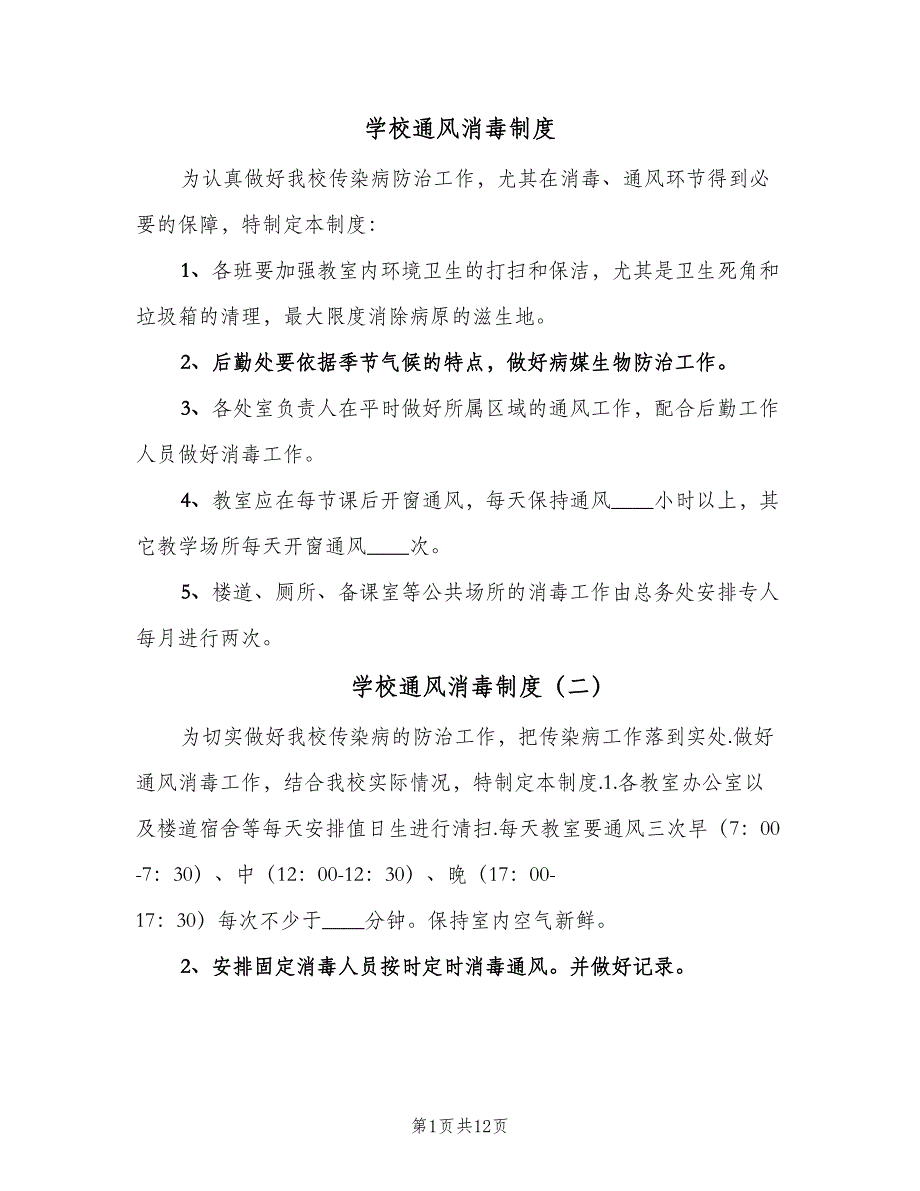 学校通风消毒制度
为认真做好我校传染病防治工作，尤其在消毒、通风环节得到必
要的保障，特制定本制度：
1、各班要加强教室内环境卫生的打扫和保洁，尤其是卫生死角和
垃圾箱的清理，最大限度消除病原的滋生地。
2、后勤处要依据季节气候的特点，做好病媒生物防治工作。
3、各处室负责人在平时做好所属区域的通风工作，配合后勤工作
人员做好消毒工作。
4、教室应在每节课后开窗通风，每天保持通风____小时以上，其
它教学场所每天开窗通风____次。
5、楼道、厕所、备课室等公共场所的消毒工作由总务处安排专人
每月进行两次。
学校通风消毒制度（二）
为切实做好我校传染病的防治工作，把传染病工作落到实处.做好
通风消毒工作，结合我校实际情况，特制定本制度.1.各教室办公室以
及楼道宿舍等每天安排值日生进行清扫.每天教室要通风三次早（7：00
-7：30）、中（12：00-12：30）、晚（17：00-
17：30）每次不少于____分钟。保持室内空气新鲜。
2、安排固定消毒人员按时定时消毒通风。并做好记录。
第1页共12页